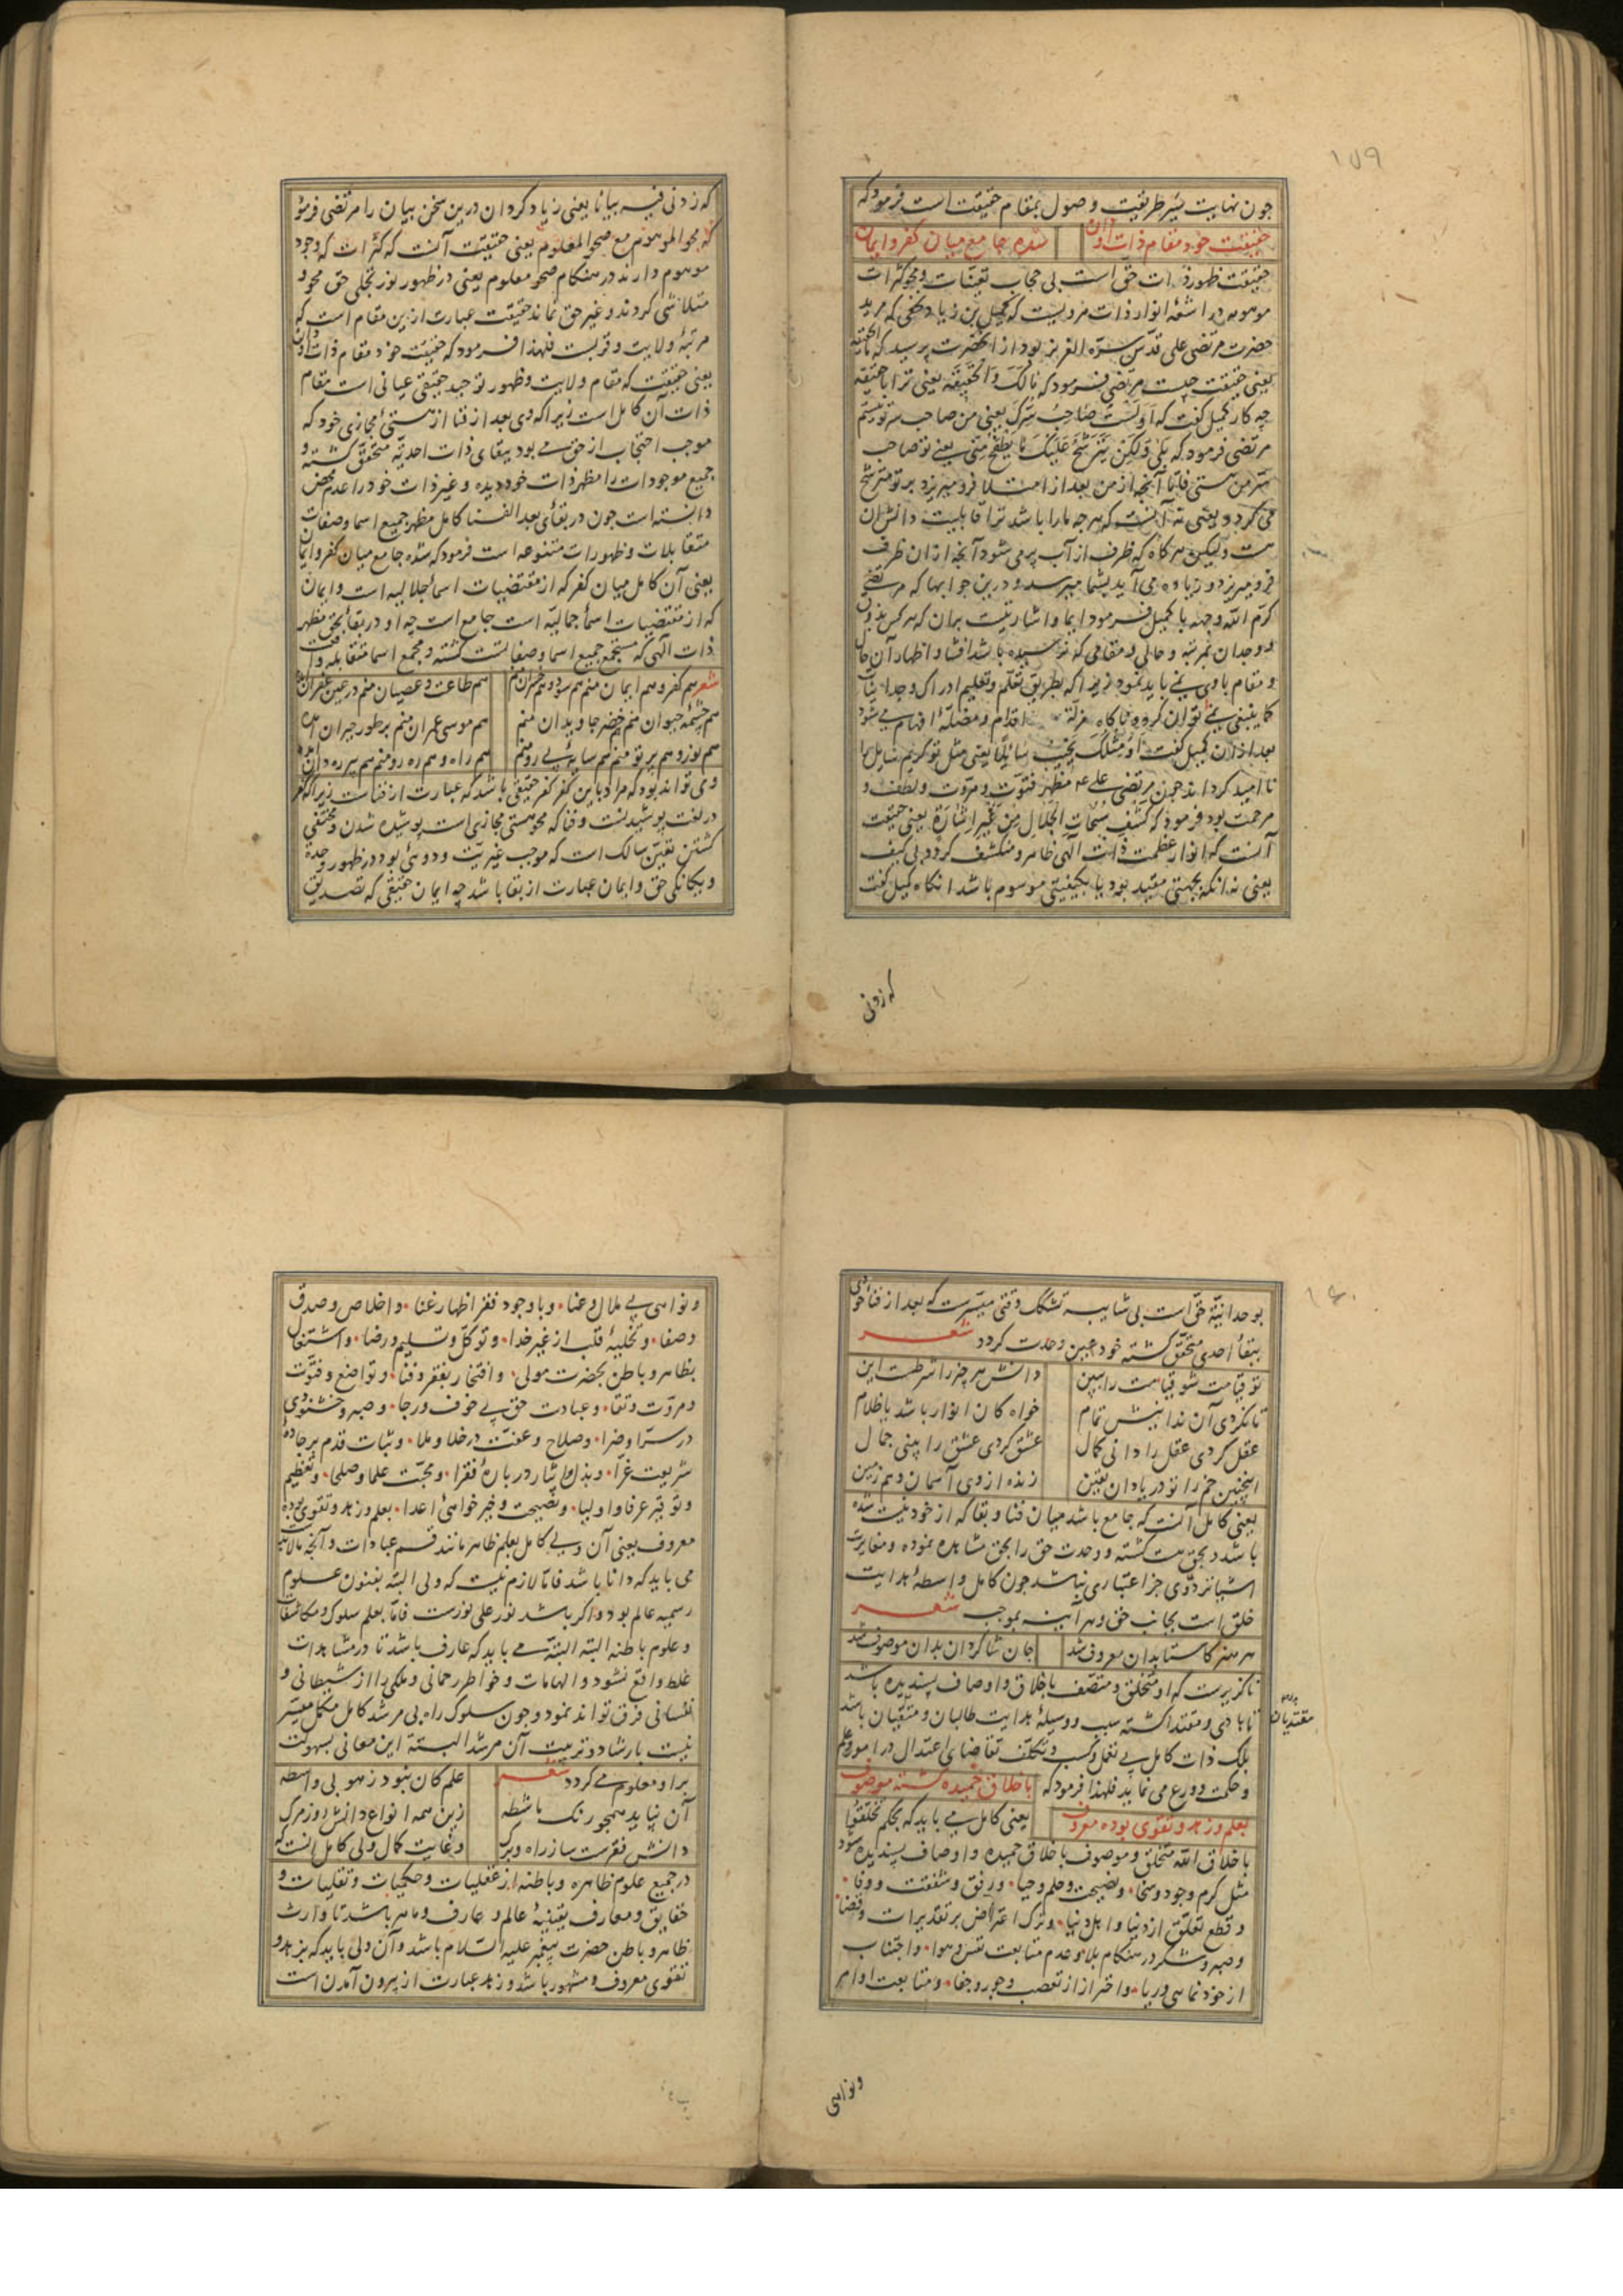 ۱۵۹
چون نهایت سیر طریقت و وصول بمقام حقیقت است فرمود که
حقیقت خود مقام ذات او دان
شده جامع میان کفر و ایمان
حقیقت ظهور ذات حق است بی حجاب تعینات و محو کثرات
موهومه در اشعهٔ انوار ذات مرویست که کمیل بن زیاد نخعی که مرید
حضرت مرتضی علی قدس سره العزیز بود از آنحضرت پرسید که ما الحقیقه
یعنی حقیقت چیست مرتضی فرمود که مَا لَكَ وَ الْحَقِيقَة یعنی ترا با حقیقه
چه کار کمیل گفت که اَوَ لَسْتُ صَاحِبَ سِرِّكَ یعنی من صاحب سر تو نیستم
مرتضی فرمود که بَلَى وَلَكِن يَتَرَشَّحُ عَلَيْكَ مَا يَطْفَحُ مِنِّي یعنی تو صاحب
سر من هستی فاما آنچه از من بعد از امتلا فرو میریزد بر تو مترشح
می گردد و یعنی نه آنست که هر چه ما را باشد ترا قابلیت دانش آن
هست ولیکن هر کاه که ظرف از آب پر می شود آنچه از آن ظرف
فرو میریزد و زیاده می آید بشما میرسد و درین جوابها که مرتضی
کرم الله وجهه با کمیل فرمود ایما و اشارتیست بر آن که هر کس بذوق
و وجدان بمرتبه و حالی و مقامی که نرسیده باشد افشا و اظهار آن حال
و مقام با وی نمی باید نمود زیرا که بطریق تعلم و تعلیم ادراک وجدانیات
کما ینبغی نمی توان کرد و ناکاه مزلهٔ اقدام و مضلهٔ افهام می شود
بعد از آن کمیل گفت اَوَ مِثْلُكَ يُخَيِّبُ سَائِلًا یعنی مثل تو کریم سایل را
نا امید کرداند چون مرتضی علی ع مظهر فتوت و مروت و لطف و
مرحمت بود فرمود که كَشْفُ سُبُحَاتِ الْجَلَالِ مِنْ غَيْرِ اِشَارَةٍ یعنی حقیقت
آنست که انوار عظمت ذات الهی ظاهر و منکشف کردد بی کیف
یعنی نه آنکه بجهتی مقید بود یا بکیفیتی موسوم باشد آنکاه کمیل گفت
که زدنی
که زدنی فیه بیانا یعنی زیاد کردان درین سخن بیان را مرتضی فرمود
که محو الموهوم مع صحو المعلوم یعنی حقیقت آنست که کثرات که وجود
موهوم دارند در هنکام صحو معلوم یعنی در ظهور نور تجلی حق محو و
متلاشی کردند و غیر حق نماند حقیقت عبارت ازین مقام است که
مرتبهٔ ولایت و قربت فلهذا فرمود که حقیقت خود مقام ذات او دان
یعنی حقیقت که مقام ولایت و ظهور توحید حقیقی عیانی است مقام
ذات آن کامل است زیرا که وی بعد از فنا از هستی مجازی خود که
موجب احتجاب از حق می بود ببقای ذات احدیه متحقق کشته و
جمیع موجودات را مظهر ذات خود دیده و غیر ذات خود را عدم محض
دانسته است چون در بقای بعد الفنا کامل مظهر جمیع اسما و صفات
متقابلات و ظهورات متنوعه است فرمود که شده جامع میان کفر و ایمان
یعنی آن کامل میان کفر که از مقتضیات اسماء جلالیه است و ایمان
که از مقتضیات اسماء جمالیه است جامع است چه او در بقاء بحق مظهر
ذات الهی که مستجمع جمیع اسما و صفاتست کشته و مجمع اسما متقابله
شعر هم کفر و هم ایمان منم هم سود و هم خسران منم
هم طاعت و عصیان منم در عین غفران آمده
هم چشمه حیوان منم هم خضر جاویدان منم
هم موسی عمران منم بر طور حیران آمده
هم نور و هم پرتو منم هم سایهٔ بی رو منم
هم راه و هم ره رو منم هم پیر ره دان آمده
و می تواند بود که مراد باین کفر کفر حقیقی باشد که عبارت از فناست زیرا که کفر
در لغت پوشیدنست و فنا که محو هستی مجازی است پوشیده شدن و مختفی
کشتن تعین سالک است که موجب غیریت و دوئی بود در ظهور وحدة
و یکانکی حق و ایمان عبارت از بقا باشد چه ایمان حقیقی که تصدیق
۱۶۰
بوحدانیة حق است بی شایبه تشکک وقتی میسر است که بعد از فناء خودی
ببقاء احدی متحقق کشته خود عین وحدت کردد شعر
تو قیامت شو قیامت را ببین
دانش هر چیز را شرطست این
تا نکردی آن ندانیش تمام
خواه کان انوار باشد یا ظلام
عقل کردی عقل را دانی کمال
عشق کردی عشق را بینی جمال
اینچنین خم را تو دریا دان یقین
زنده از وی آسمان و هم زمین
یعنی کامل آنست که جامع باشد میان فنا و بقا که از خود نیست شده
باشد و بحق هست کشته و وحدت حق را بحق مشاهده نموده و مغایرت
اشیا نزد وی جز اعتباری نباشد چون کامل واسطهٔ هدایت
خلق است بجانب حق و هر آینه بموجب شعر
هر هنر کاستا بدان معروف شد
جان شاکردان بدان موصوف شد
ناکزیرست که او متخلق و متصف باخلاق و اوصاف پسندیده باشد
تا هادی و مقتدا کشته سبب و وسیلهٔ هدایت طالبان و متقیان باشد
مقتدیان
بلکه ذات کامل بی تعمل و کسب و تکلف تقاضای اعتدال در امور علم
و حکمت و ورع می نماید فلهذا فرمود که باخلاق حمیده کشته موصوف
بعلم و زهد و تقوی بوده معروف
یعنی کامل می باید که بحکم تخلقوا
باخلاق الله متخلق و موصوف باخلاق حمیده و اوصاف پسندیده شود
مثل کرم وجود و سخا و نصیحت و حلم و حیا و رفق و شفقت و وفا
و قطع تعلق از دنیا و اهل دنیا و ترک اعتراض بر تقدیرات و قضا
و صبر و شکر در هنکام بلا و عدم متابعت نفس و هوا و اجتناب
از خود نمایی و ریا و احتراز از تعصب و جور و جفا و متابعت اوامر
و نواهی
و نواهی بی ملال و عنا و با وجود فقر اظهار غنا و اخلاص و صدق
و صفا و تخلیهٔ قلب از غیر خدا و توکل و تسلیم و رضا و اشتغال
بظاهر و باطن بحضرت مولی و افتخار بفقر و فنا و تواضع و فتوت
و مروت و تقا و عبادت حق بی خوف و رجا و صبر و خشنودی
در سرا و ضرا و صلاح و عفت در خلا و ملا و ثبات قدم بر جادهٔ
شریعت غرا و بذل و ایثار در بارهٔ فقرا و محبت علما و صلحا و تعظیم
و توقیر عرفا و اولیا و نصیحت و خیر خواهی اعدا بعلم و زهد و تقوی بوده
معروف یعنی آن ولی کامل بعلم ظاهر مانند قسم عبادات و آنچه مالابد
می باید که دانا باشد فاما لازم نیست که ولی البته بفنون علوم
رسمیه عالم بود و اکر باشد نور علی نورست فاما بعلم سلوک و مکاشفات
و علوم باطنه البته البته می باید که عارف باشد تا در مشاهدات
غلط واقع نشود و الهامات و خواطر رحمانی و ملکی را از شیطانی و
نفسانی فرق تواند نمود و چون سلوک راه بی مرشد کامل مکمل میسر
نیست بارشاد و تربیت آن مرشد البته این معانی بسهولت
برا و معلوم می کردد شعر
علم کان نبود ز هو بی واسطه
آن نپاید همچو رنک ماشطه
زین همه انواع دانش روز مرک
دانش فقرست ساز راه و برک
و غایت کمال ولی کامل آنست که
در جمیع علوم ظاهره و باطنه از عقلیات و حکمیات و نقلیات و
حقایق و معارف یقینیه عالم و عارف و ماهر باشد تا وارث
ظاهر و باطن حضرت پیغمبر علیه السلام باشد و آن ولی باید که بزهد و
تقوی معروف و مشهور باشد و زهد عبارت از بیرون آمدن است